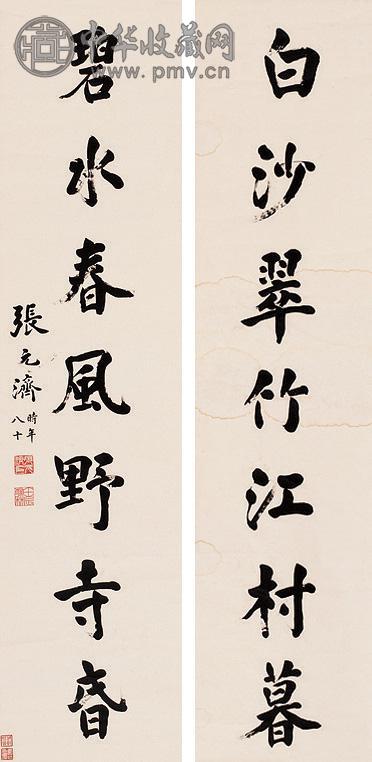 白沙翠竹江村暮
碧水春風野寺昏
張元濟
時年八十
中华收藏网
www.pmv.cn